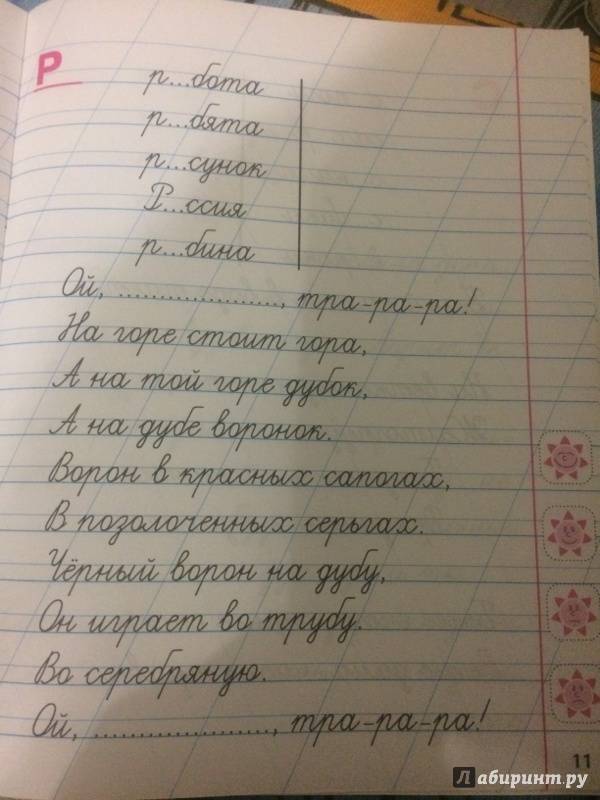 Р
р...бота
р...бята
р...сунок
Р...ссия
р...бина
Ой, ....................., тра-ра-ра!
На горе стоит гора,
А на той горе дубок,
А на дубе воронок.
Ворон в красных сапогах,
В позолоченных серьгах.
Чёрный ворон на дубу,
Он играет во трубу.
Во серебряную.
Ой, ....................., тра-ра-ра!
11
Лабиринт.ру